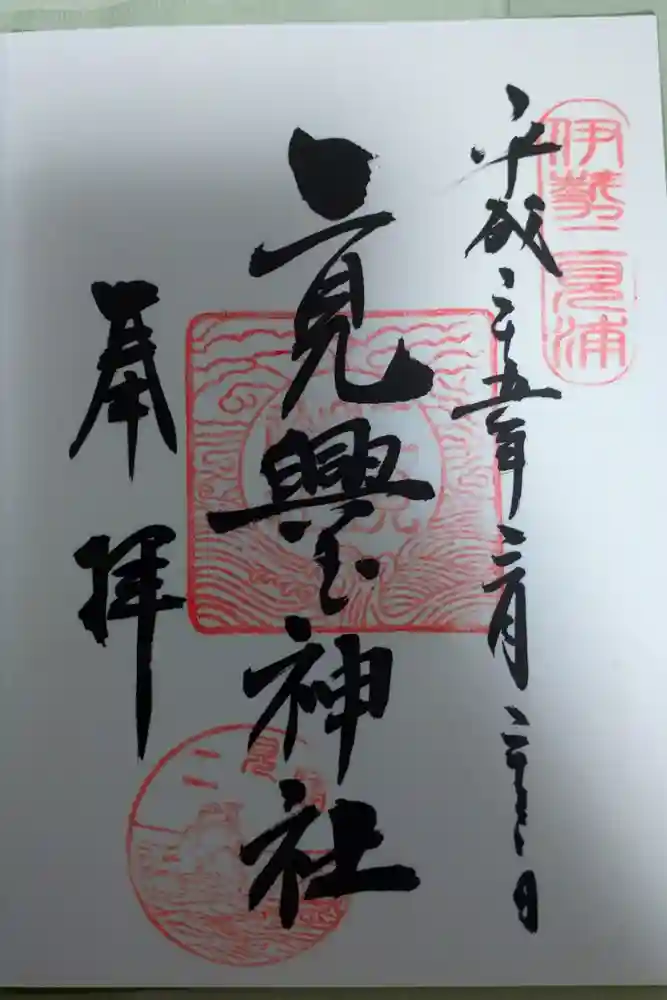 伊勢二見浦
平成二十五年二月二十日
二見興玉神社
奉拝
二見